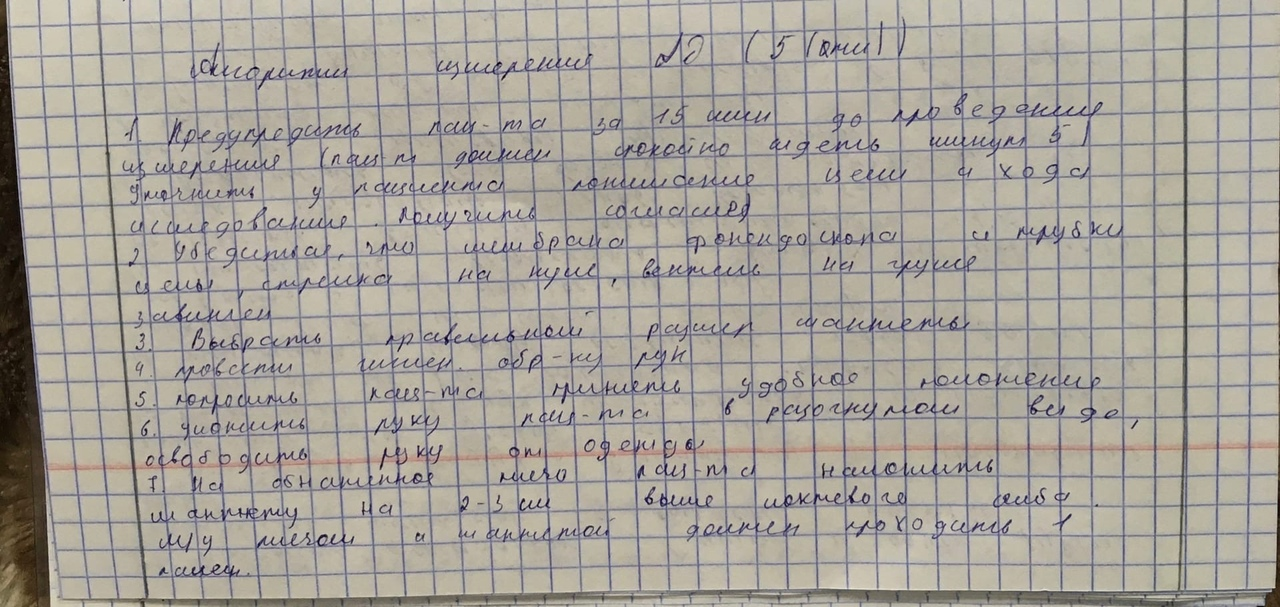 Алгоритм измерения АД (5
1. Предупредить пац-та за 15 мин до проведения
измерения (пац-т должен спокойно сидеть минут 5)
Уточнить у пациента понимание цели и хода
исследование. Получить согласие
2. Убедиться, что мембрана фонендоскопа и трубки
целы, стрелка на нуле, вентиль на груше
завинчен
3. Выбрать правильный размер манжеты
4. провести гигиен. обр-ку рук
5. попросить пац-та принять удобное положение
6. уложить руку пац-та в разогнутом виде,
освободить руку от одежды
7. На обнаженное плечо пац-та наложить
манжету на 2-3 см выше локтевого сгиба.
м/у плечом и манжетой должен проходить 1
палец.